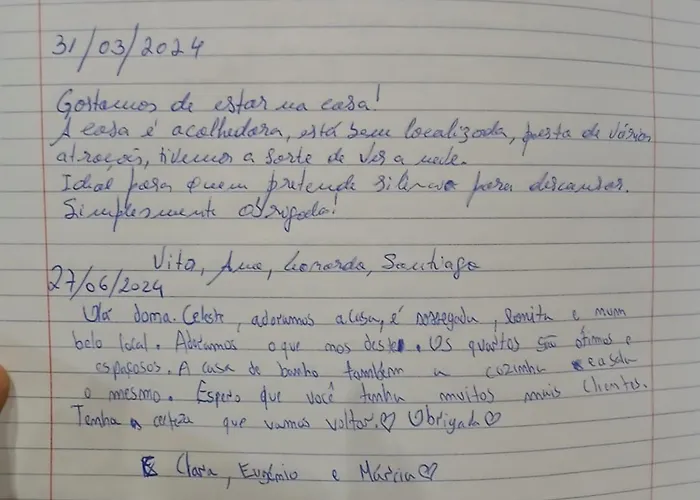 31/03/2024
Gostamos de estar na casa!
A casa é acolhedora, está bem localizada, perto de vários
atrações, tivemos a sorte de ver a neve.
Ideal para quem pretende silêncio para descansar.
Simplesmente obrigada!
Vito, Ana, Leonarda, Santiago
27/06/2024
Olá dona Celeste, adoramos a casa, é sossegada, bonita e num
belo local. Adoramos o que nos deste. Os quartos são ótimos e
espaçosos. A casa de banho também a cozinha e a sala
o mesmo. Espero que você tenha muitos mais clientes.
Tenha a certeza que vamos voltar.♡ Obrigada♡
Clara, Eugénio e Márcia♡